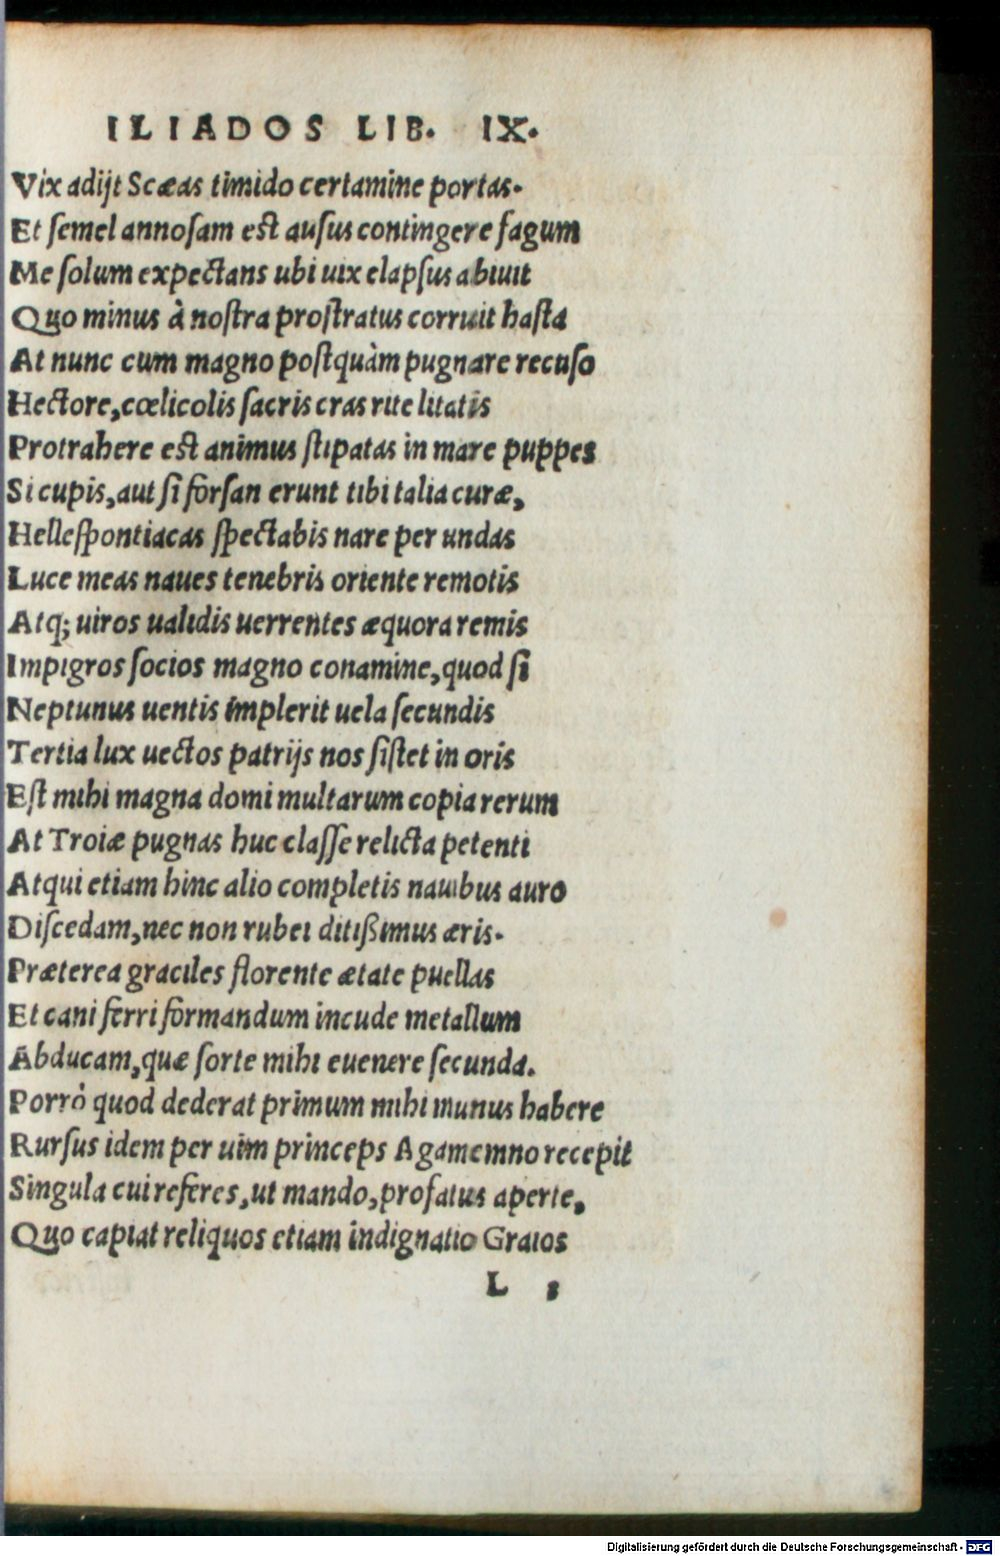 ILIADOS LIB. IX.
Vix adijt Scæas timido certamine portas.
Et semel annosam est ausus contingere fagum
Me solum expectans ubi uix elapsus abiuit
Quo minus à nostra prostratus corruit hasta
At nunc cum magno postquàm pugnare recuso
Hectore, cœlicolis sacris cras rite litatis
Protrahere est animus stipatas in mare puppes
Si cupis, aut si forsan erunt tibi talia curæ,
Hellespontiacas spectabis nare per undas
Luce meas naues tenebris oriente remotis
Atq; uiros ualidis uerrentes æquora remis
Impigros socios magno conamine, quod si
Neptunus uentis implerit uela secundis
Tertia lux uectos patrijs nos sistet in oris
Est mihi magna domi multarum copia rerum
At Troiæ pugnas huc classe relicta petenti
Atqui etiam hinc alio completis nauibus auro
Discedam, nec non rubei ditißimus æris.
Præterea graciles florente ætate puellas
Et cani ferri formandum incude metallum
Abducam, quæ sorte mihi euenere secunda.
Porrò quod dederat primum mihi munus habere
Rursus idem per uim princeps Agamemno recepit
Singula cui referes, ut mando, profatus aperte,
Quo capiat reliquos etiam indignatio Graios
L
Digitalisierung gefördert durch die Deutsche Forschungsgemeinschaft - DFG